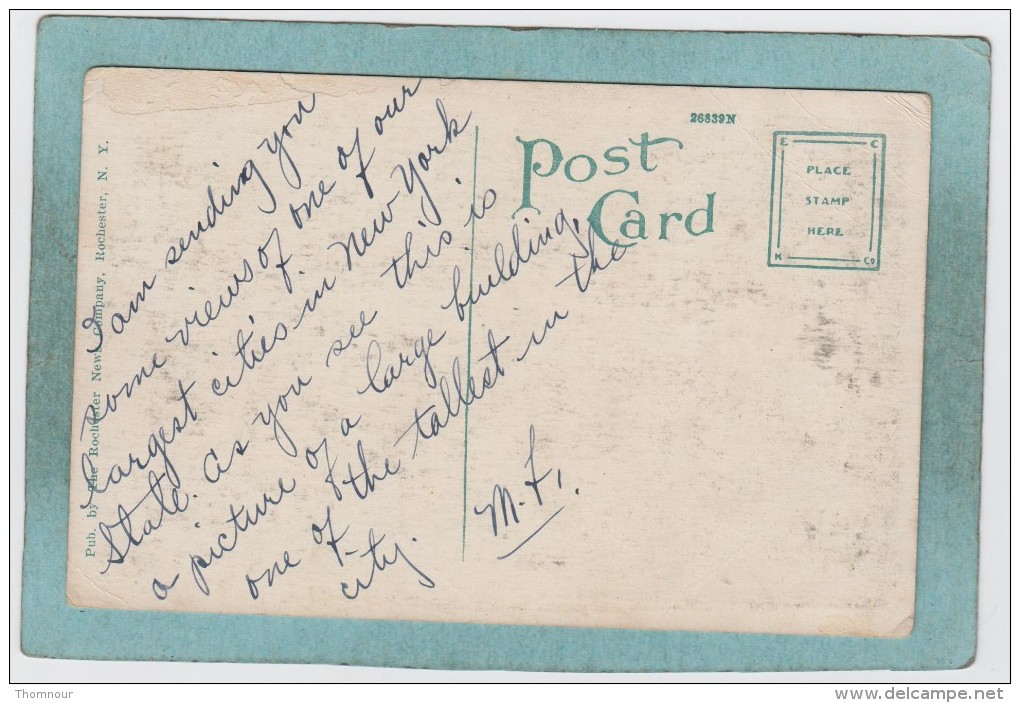 Pub. by The Rochester News Company, Rochester, N. Y.
I am sending you
some views of one of our
largest cities in New York
State. As you see this is
a picture of a large building,
one of the tallest in the
city.
M. F.
26839N
Post
Card
E C
PLACE
STAMP
HERE
K Co
Thomnour
www.delcampe.net